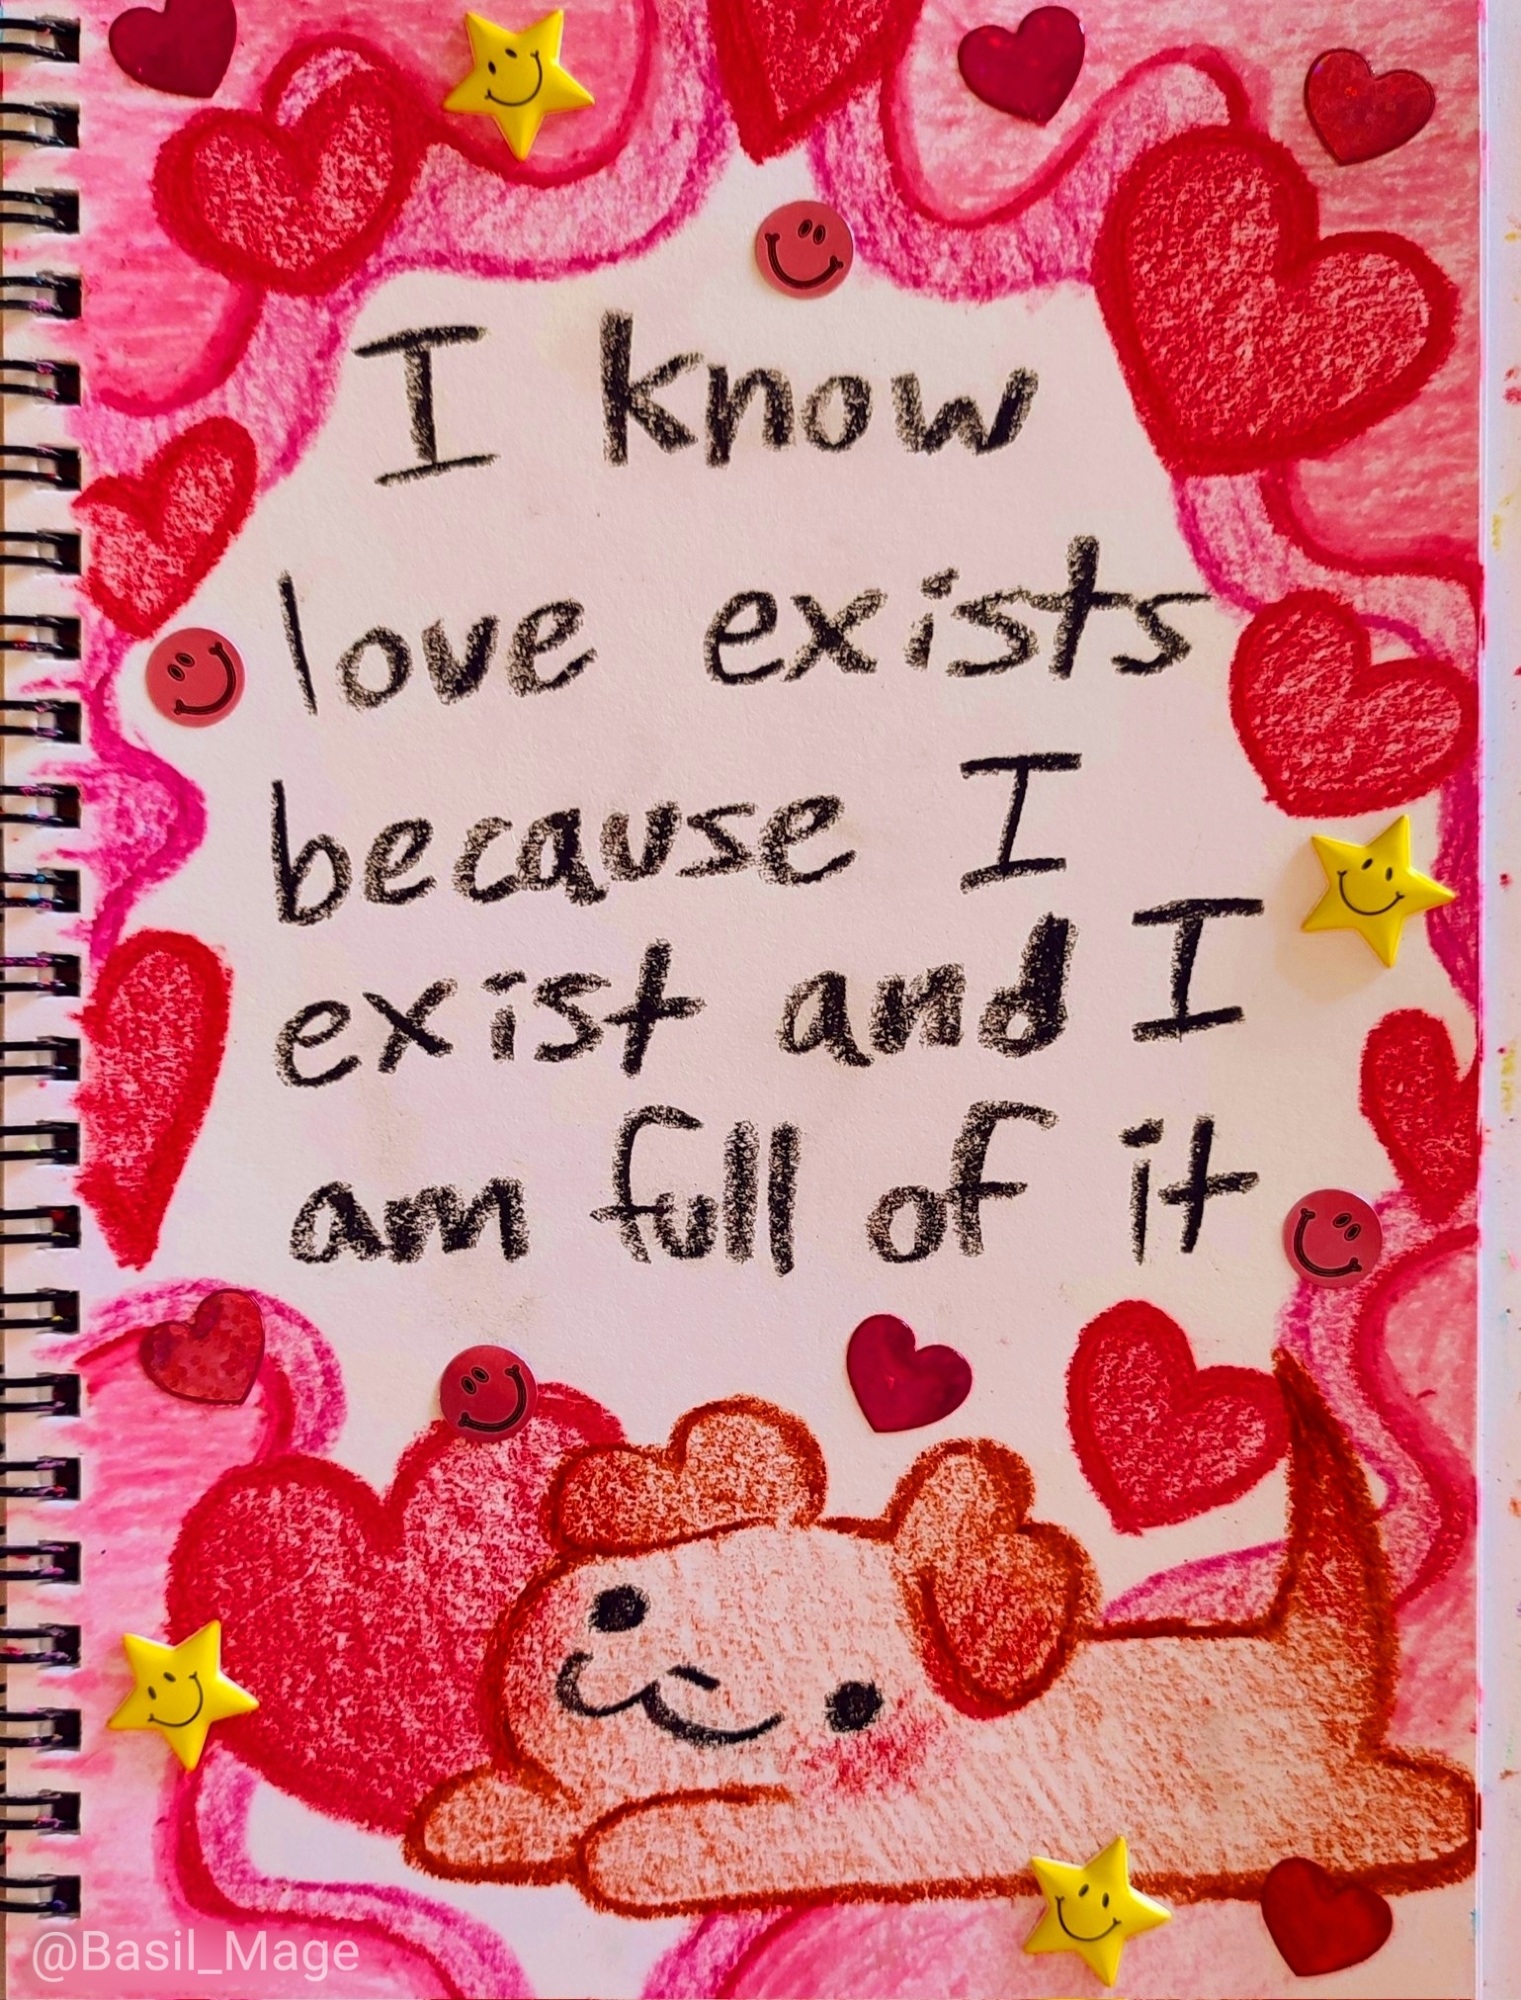 I know
love exists
because I
exist and I
am full of it
@Basil_Mage